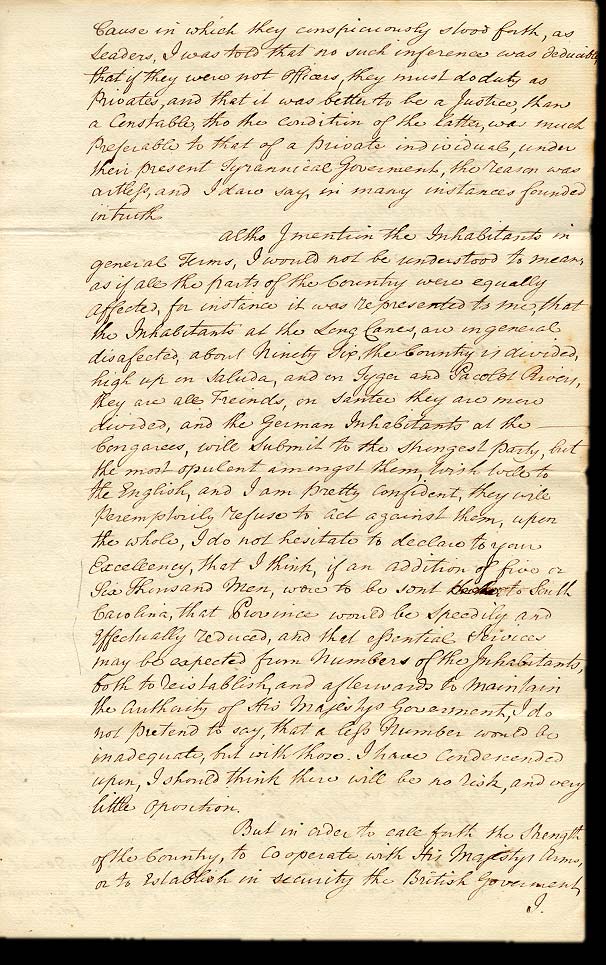 Cause in which they conspicuously stood forth, as
Leaders, I was told that no such inference was deducible,
that if they were not officers, they must do duty as
Privates, and that it was better to be a Justice, than
a Constable, tho the condition of the latter, was much
Preferable to that of a private individual, under
their present Tyrannical Goverment, the reason was
artless, and I dare say, in many instances founded
in truth
Altho I mention the Inhabitants in
general Terms, I would not be understood to mean,
as if all the parts of the Country were equally
affected, for instance it was represented to me, that
the Inhabitants at the Long Canes, are in general
disafected, about Ninety Six, the Country is divided,
high up on Saluda, and on Tyger and Pacolet Rivers,
they are all Freinds, on Santee they are more
divided, and the German Inhabitants at the
Congarees, will submit to the strongest party, but
the most opulent amongst them, wish well to
the English, and I am pretty confident, they will
Peremptorily refuse to act against them, upon
the whole, I do not hesitate to declare to your
Excellency, that I think, if an addition of five or
Six Thousand Men, were to be sent to South
Carolina, that Province would be speedily and
effectually reduced, and that essential Services
may be expected from Numbers of the Inhabitants,
both to reistablish, and afterwards to maintain
the Authority of His Majestys Goverment, I do
not pretend to say, that a less Number would be
inadequate, but with those I have condescended
upon, I should think there will be no risk, and very
little oposition.
But in order to call forth the Strength
of the Country, to Cooperate with His Majestys Arms,
or to Establish in security the British Goverment,
I.